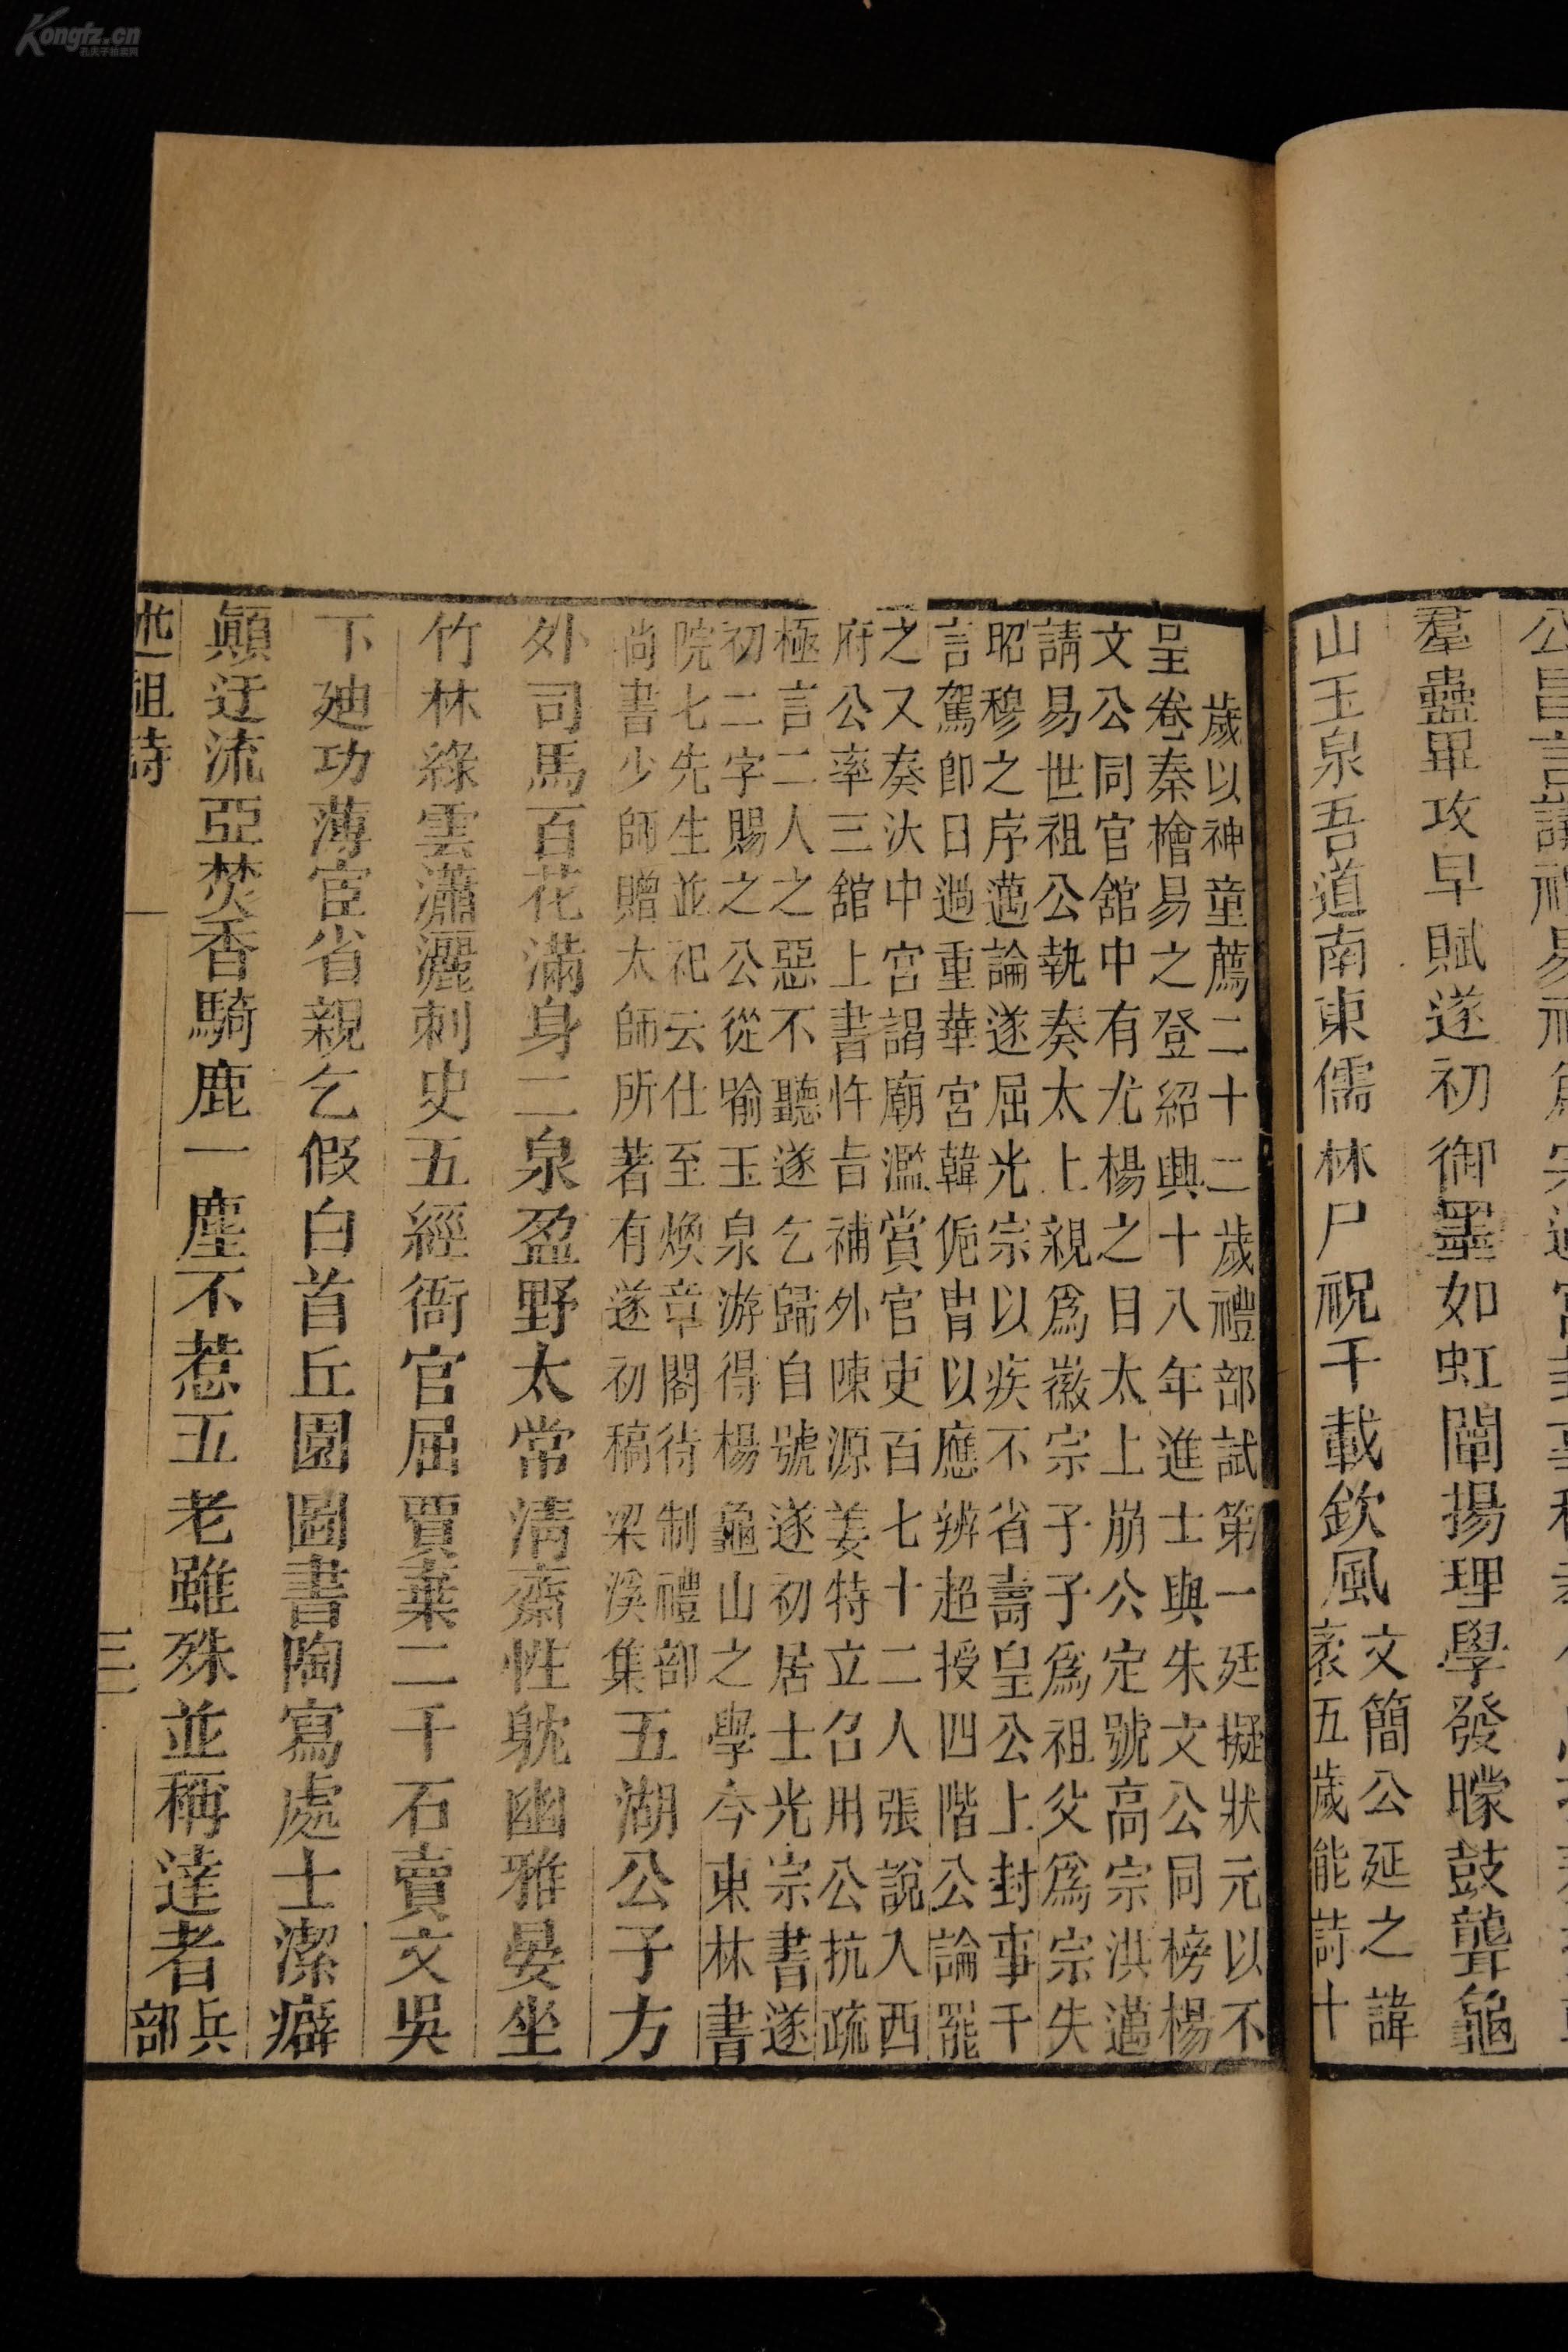 羣蠱畢攻早賦遂初御墨如虹闡揚理學發矇鼓聾龜
山玉泉吾道南東儒林尸祝千載欽風文簡公延之諱
袤五歲能詩十
歲以神童薦二十二歲禮部試第一廷擬狀元以不
呈卷秦檜易之登紹興十八年進士與朱文公同榜楊
文公同官舘中有尤楊之目太上崩公定號高宗洪邁
請易世祖公執奏太上親爲徽宗子子爲祖父爲宗失
昭穆之序邁論遂屈光宗以疾不省壽皇公上封事千
言駕卽日過重華宮韓侂胄以應辨超授四階公論罷
之又奏汰中宮謁廟濫賞官吏百七十二人張說入西
府公率三舘上書忤旨補外陳源姜特立召用公抗疏
極言二人之惡不聽遂乞歸自號遂初居士光宗書遂
初二字賜之公從喻玉泉游得楊龜山之學今東林書
院七先生並祀云仕至煥章閣待制禮部
尚書少師贈太師所著有遂初稿梁溪集五湖公子方
外司馬百花滿身二泉盈野太常清齋性躭幽雅晏坐
竹林綠雲瀟灑刺史五經衙官屈賈棄二千石賣文吳
下廸功薄宦省親乞假白首丘園圖書陶寫處士潔癖
顚迂流亞焚香騎鹿一塵不惹五老雖殊並稱達者兵
部
述祖詩 三
Kongfz.cn